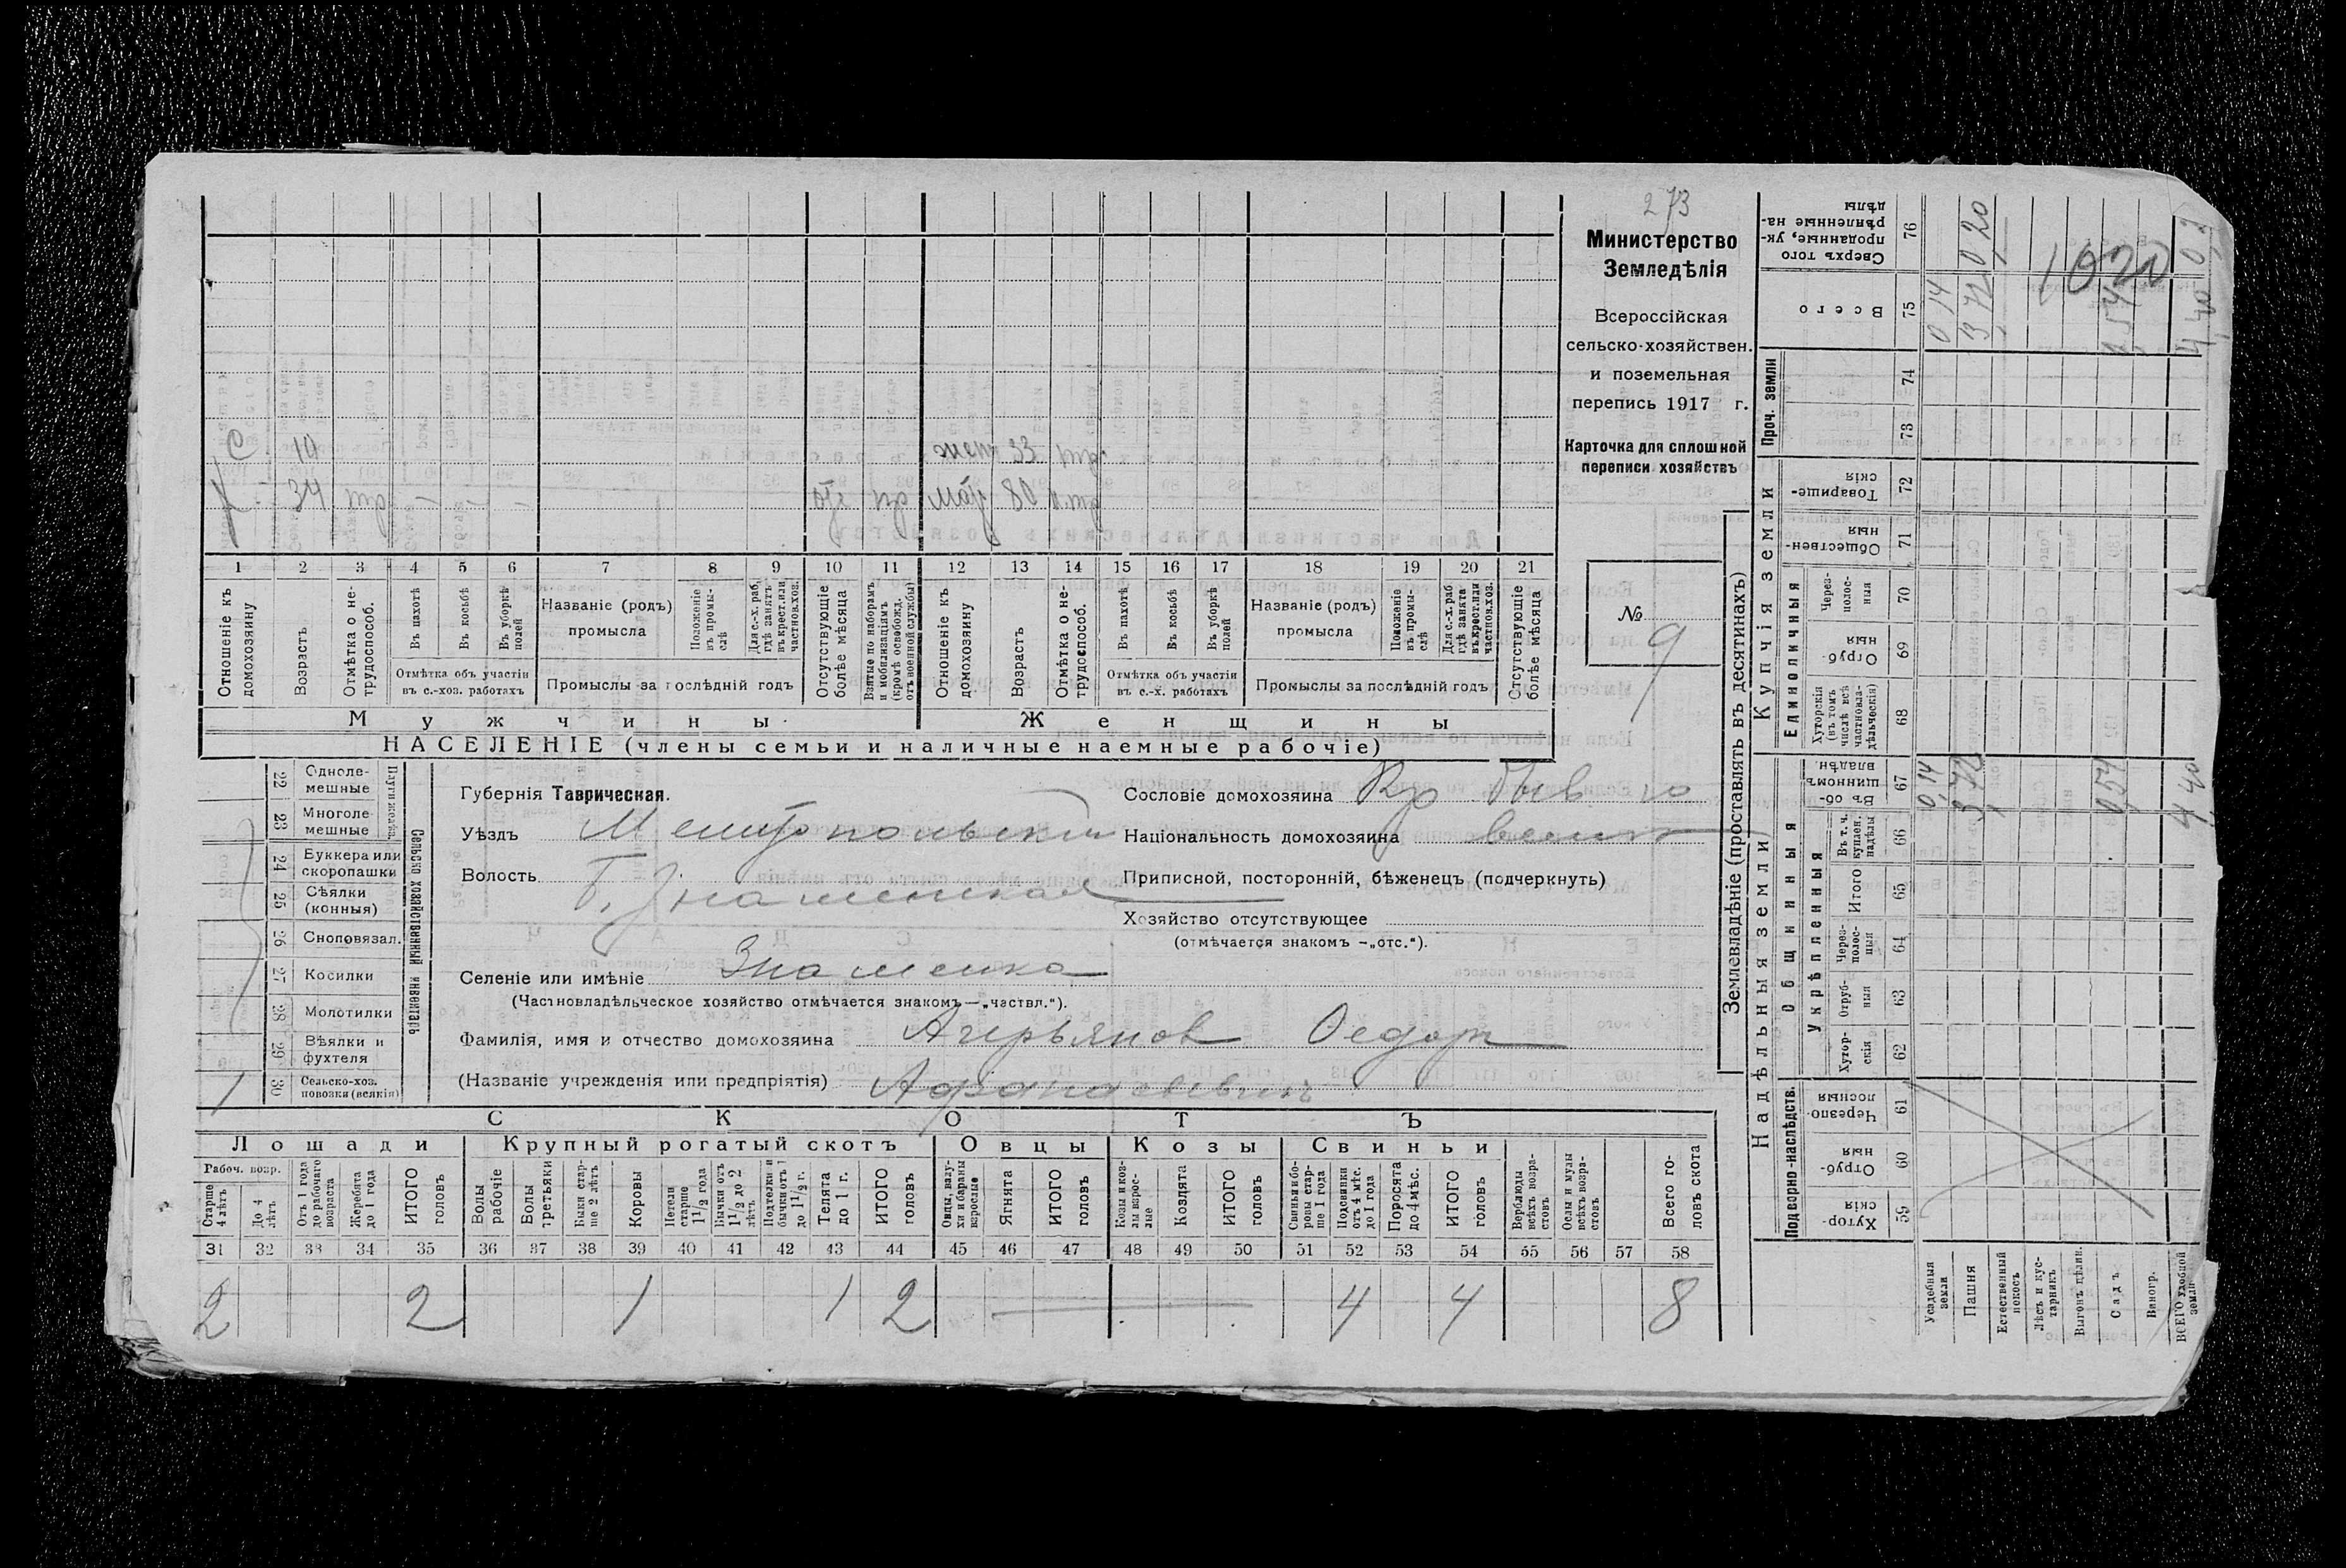 273
Министерство
Земледѣлія
Всероссійская
сельско-хозяйствен.
и поземельная
перепись 1917 г.
Карточка для сплошной
переписи хозяйствъ
№ 9
С 10 жен 33
34 80
1 2 3 4 5 6 7 8 9 10 11 12 13 14 15 16 17 18 19 20 21
Отношеніе къ домохозяину
Возрастъ
Отмѣтка о нетрудоспособ.
Въ пахотѣ
Въ косьбѣ
Въ уборкѣ полей
Отмѣтка объ участіи въ с.-хоз. работахъ
Названіе (родъ) промысла
Положеніе въ промыслѣ
Для с.-х. раб. гдѣ занятъ въ крест. или частнов. хоз.
Промыслы за послѣдній годъ
Отсутствующіе болѣе мѣсяца
Взятые по наборамъ и мобилизаціямъ (кромѣ освобожд. отъ военной службы)
Отношеніе къ домохозяину
Возрастъ
Отмѣтка о нетрудоспособ.
Въ пахотѣ
Въ косьбѣ
Въ уборкѣ полей
Отмѣтка объ участіи въ с.-х. работахъ
Названіе (родъ) промысла
Положеніе въ промыслѣ
Для с.-х. раб. гдѣ занята въ крест. или частнов. хоз.
Промыслы за послѣдній годъ
Отсутствующіе болѣе мѣсяца
Мужчины Женщины
НАСЕЛЕНІЕ (члены семьи и наличные наемные рабочіе)
22 Однолемешные
23 Многолемешные
24 Буккера или скоропашки
25 Сѣялки (конныя)
26 Сноповязал.
27 Косилки
28 Молотилки
29 Вѣялки и фухтеля
1 30 Сельско-хоз. повозки (всякія)
Сельско хозяйственный инвентарь
Губернія Таврическая.
Уѣздъ Мелитопольскій
Волость Б. Знаменская
Селеніе или имѣніе Знаменка
(Частновладѣльческое хозяйство отмѣчается знакомъ—„частвл.“).
Сословіе домохозяина Кр быв
Національность домохозяина вели
Приписной, посторонній, бѣженецъ (подчеркнуть)
Хозяйство отсутствующее
(отмѣчается знакомъ —„отс.“).
Фамилія, имя и отчество домохозяина Аверьянов Федор
(Названіе учрежденія или предпріятія) Афанасьевич
СКОТЪ
Лошади Крупный рогатый скотъ Овцы Козы Свиньи
Рабоч. возр.
Старше 4 лѣтъ
До 4 лѣтъ
Отъ 1 года до рабочаго возраста
Жеребята до 1 года
ИТОГО головъ
Волы рабочіе
Волы третьяки
Быки старше 2 лѣтъ
Коровы
Нетели старше 1 1/2 года
Бычки отъ 1 1/2 до 2 лѣтъ
Подтелки и бычки отъ 1 до 1 1/2 г.
Телята до 1 г.
ИТОГО головъ
Овцы, валухи и бараны взрослые
Ягнята
ИТОГО головъ
Козы и козлы взрослые
Козлята
ИТОГО головъ
Свиньи и боровы старше 1 года
Подсвинки отъ 4 мѣс. до 1 года
Поросята до 4 мѣс.
ИТОГО головъ
Верблюды всѣхъ возрастовъ
Ослы и мулы всѣхъ возрастовъ
Всего головъ скота
31 32 33 34 35 36 37 38 39 40 41 42 43 44 45 46 47 48 49 50 51 52 53 54 55 56 57 58
2 2 1 1 2 4 4 8
Землевладѣніе (проставлять въ десятинахъ)
Надѣльныя земли Купчія земли Проч. земли
Подворно-наслѣдств.
Общинныя
Укрѣпленныя
Единоличныя
Хуторскія 59
Отрубныя 60
Черезполосныя 61
Хуторскія 62
Отрубныя 63
Черезполосныя 64
Итого 65
Въ т. ч. куплен. надѣлы 66
Въ общинномъ владѣн. 67
Хуторскія (въ томъ числѣ всѣ частновладѣльческія) 68
Отрубныя 69
Черезполосныя 70
Общественныя 71
Товарищескія 72
73
74
Всего 75
Сверхъ того проданные, укрѣпленные надѣлы 76
Усадебныя земли 0,14 0 14
Пашня 3,72 3 72 0 20
Естественный покосъ
Лѣсъ и кустарникъ
Выгонъ цѣлин.
Садъ 0,54 0 54
Виногр.
ВСЕГО удобной земли 4,40 4,40
1020